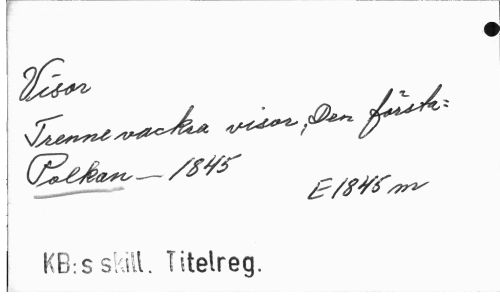 Visor
Trenne vackra visor, Den första:
Polkan — 1845
E1845 m
KB:s skill. Titelreg.